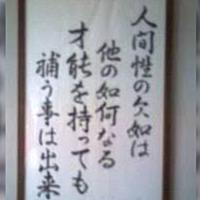 人間性の欠如は
他の如何なる
才能を持っても
補う事は出来